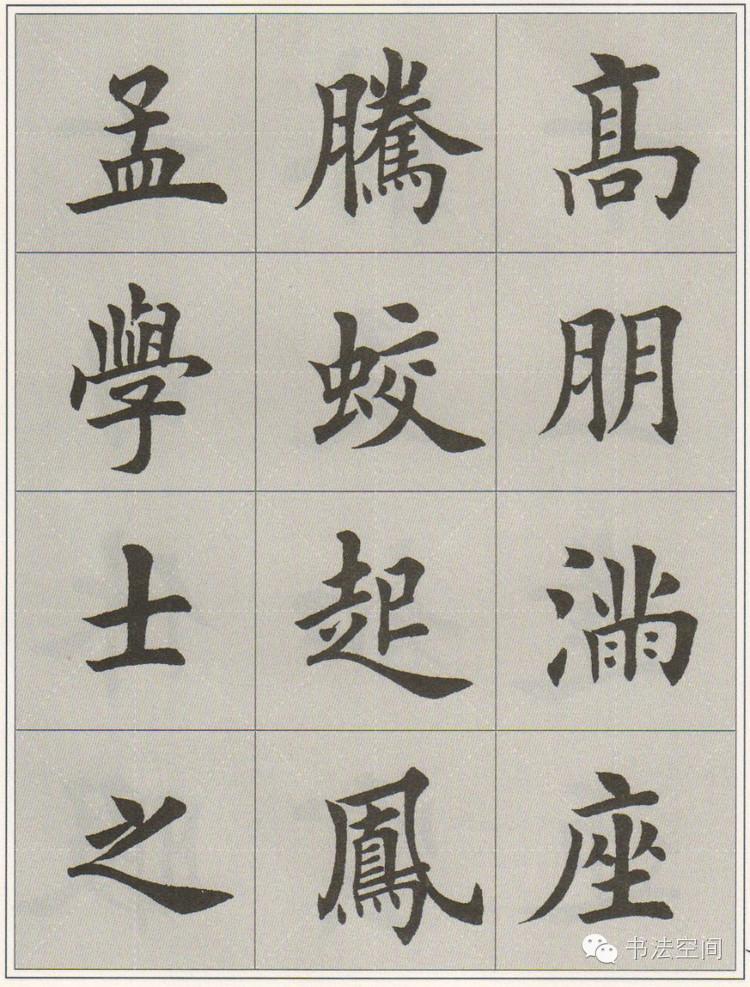 髙朋滿座
騰蛟起鳳
孟學士之
书法空间